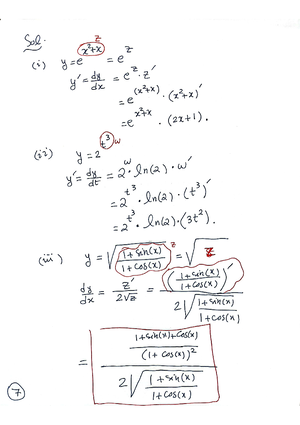 Sol.
(i) y = e^(x²+x) = e^z z
y' = dy/dx = e^z · z'
= e^(x²+x) · (x²+x)'
= e^(x²+x) · (2x+1).
(ii) y = 2^(t³) w
y' = dy/dt = 2^w · ln(2) · w'
= 2^(t³) · ln(2) · (t³)'
= 2^(t³) · ln(2) · (3t²).
(iii) y = √((1+sin(x))/(1+cos(x))) z = √z
dy/dx = z'/(2√z) = ((1+sin(x))/(1+cos(x)))' / (2√((1+sin(x))/(1+cos(x))))
= ((1+sin(x)+cos(x))/(1+cos(x))²) / (2√((1+sin(x))/(1+cos(x))))
7